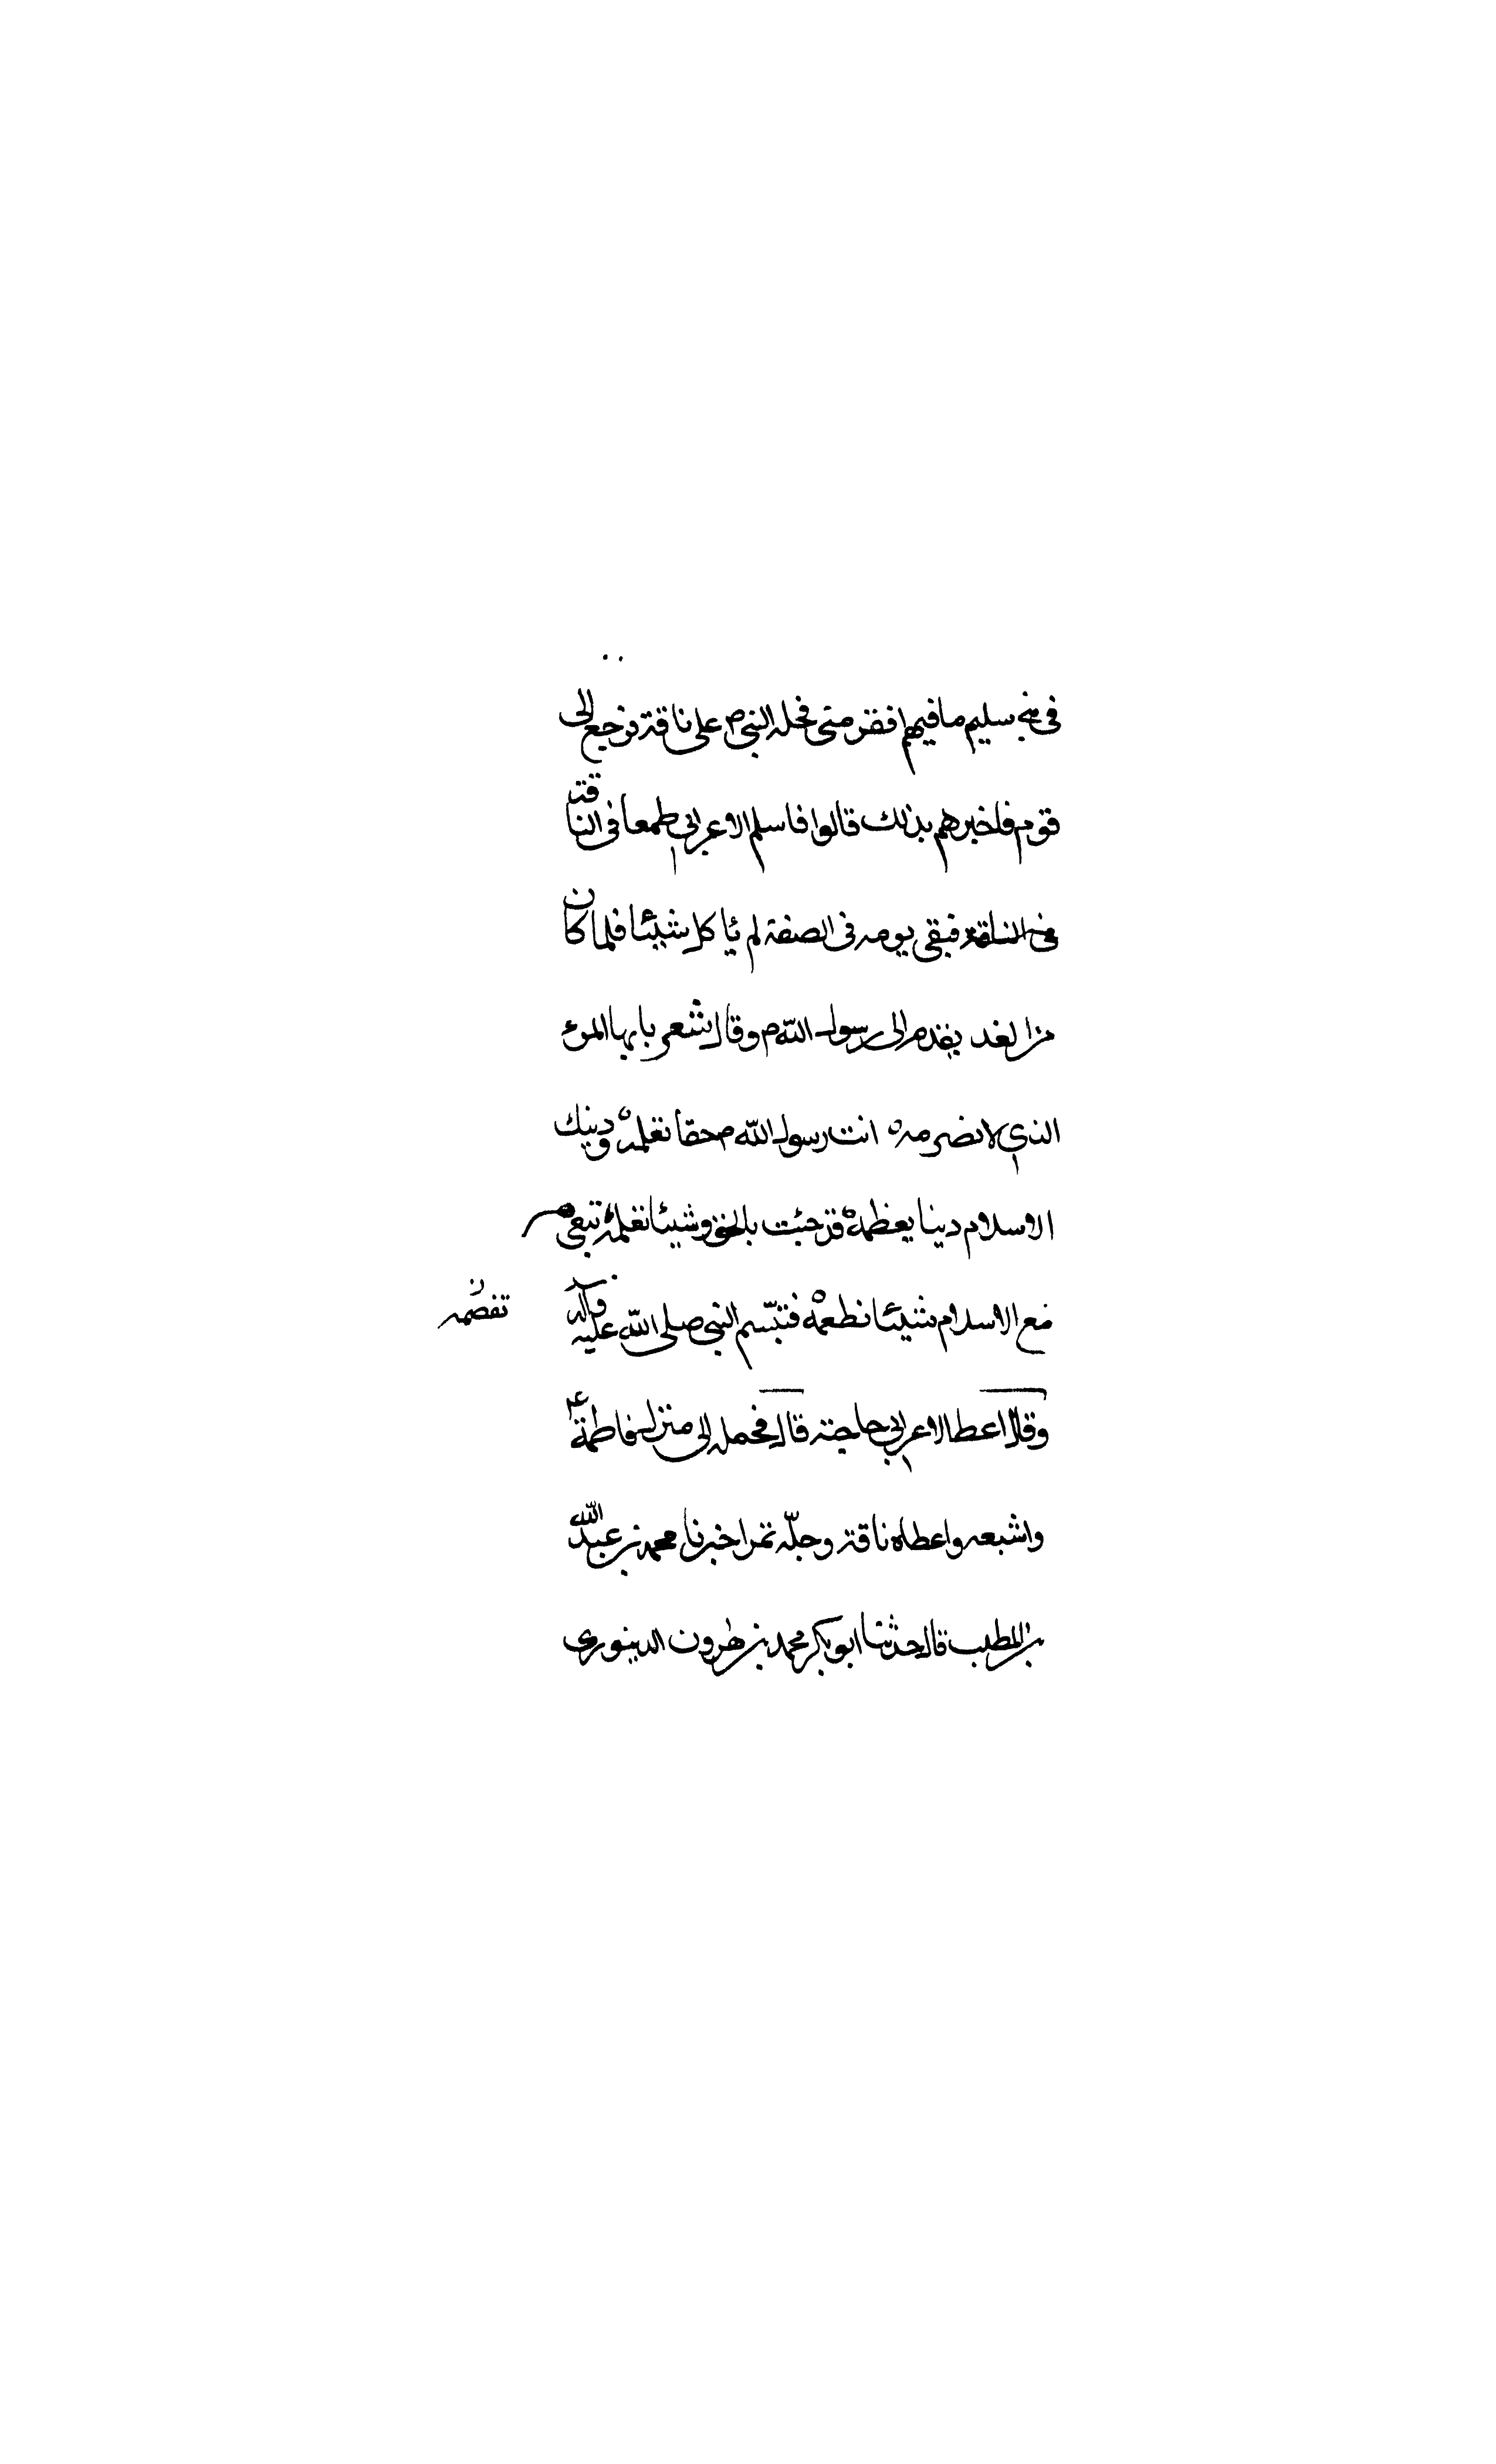 في بني سليم ما فيهم افقر مني فحمله النبي ص على ناقة فرجع الى
قومه فاخبرهم بذلك قالوا فاسلم الاعرابي طمعا في الناقة
في الناقة فبقي يومه في الصفة لم يأكل شيئا فلما كان
من الغد يقدم الى رسول الله ص وقال شعر يا ايها المرء
الذي لا نعدمه انت رسول الله ص حقا نعلمه ودينك
الاسلام دينا يعظمه قد جئت بالحق وشيئا نعلمه تبغي
مع الاسلام شيئا نطعمه فتبسم النبي صلى الله عليه وآله
وقال اعط الاعرابي حاجته قال فحمله الى منزل فاطمة ع
واشبعه واعطاه ناقة وجلّة تمرا اخبرنا محمد بن عبد الله
بن المطلب قال حدثنا ابو بكر محمد بن هرون الدينوري